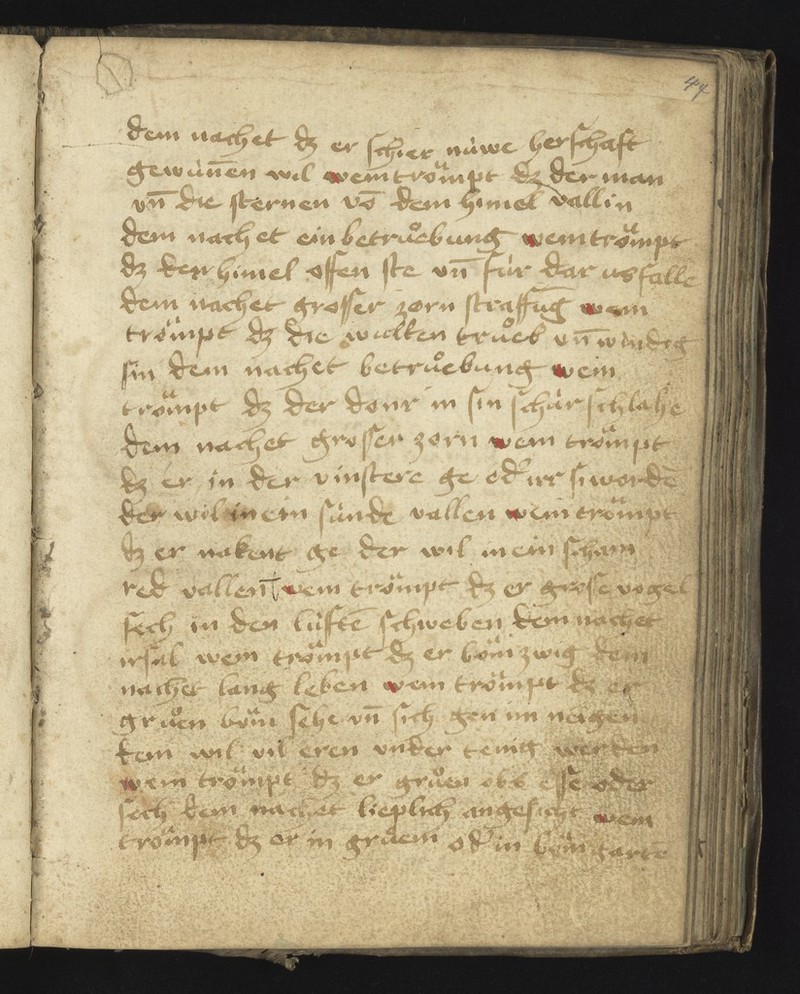 44
dem nachet dz er schier nüwe herschaft
gewünen wil wem trömpt dz der man
vn̄ die sternen vō dem himel vallin
dem nachet ein betruͦebung wem trömpt
dz der himel offen ste vn̄ für dar us falle
dem nachet grosser zorn straffūg wem
trömpt dz die wulken truͦeb vn̄ windig
sin dem nachet betruͦebung wem
trömpt dz der donr in sin schür schlahe
dem nachet grosser zorn wem trömpt
dz er in der vinstere ge od' irr si wordē
der wil in ein sünde vallen wem trömpt
dz er nakent ge der wil in ein scham
red vallen wem trömpt dz er grosse vogel
sech in den lüftē schweben dem nachet
irsal wem trömpt dz er böm zwig dem
nachet lang leben wem trömpt dz er
gruͦen böm sehe vn̄ sich gen im neigen
dem wil vil eren vnder tenig werden
wem trömpt dz er gruͦen obs esse oder
sech dem nachet lieplich angesicht wem
trömpt dz er in gruͦem od' in böm gartē